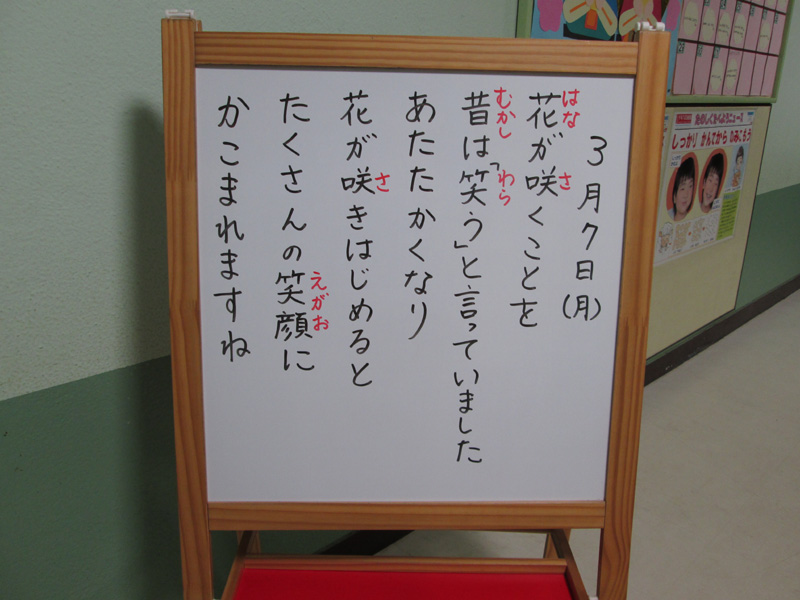 3月7日(月)
花が咲くことを
はな
さ
昔は「笑う」と言っていました
むかし
わら
あたたかくなり
花が咲きはじめると
さ
たくさんの笑顔に
えがお
かこまれますね
しっかり かんでから のみこもう